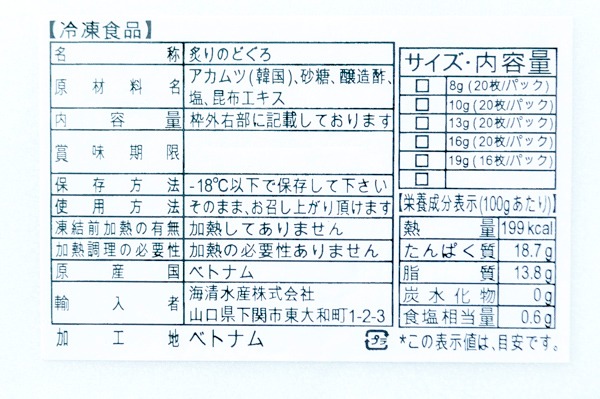 【冷凍食品】
名称 炙りのどぐろ
原材料名 アカムツ(韓国)、砂糖、醸造酢、
塩、昆布エキス
内容量 枠外右部に記載しております
賞味期限
保存方法 -18℃以下で保存して下さい
使用方法 そのまま、お召し上がり頂けます
凍結前加熱の有無 加熱してありません
加熱調理の必要性 加熱の必要性ありません
原産国 ベトナム
輸入者 海清水産株式会社
山口県下関市東大和町1-2-3
加工地 ベトナム
プラ
サイズ・内容量
8g(20枚/パック)
10g(20枚/パック)
13g(20枚/パック)
16g(20枚/パック)
19g(16枚/パック)
【栄養成分表示(100gあたり)】
熱量 199kcal
たんぱく質 18.7g
脂質 13.8g
炭水化物 0g
食塩相当量 0.6g
*この表示値は、目安です。